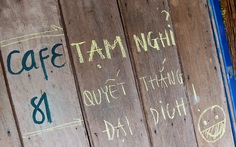 CAFE
81
TẠM NGHỈ
QUYẾT THẮNG
ĐẠI DỊCH!